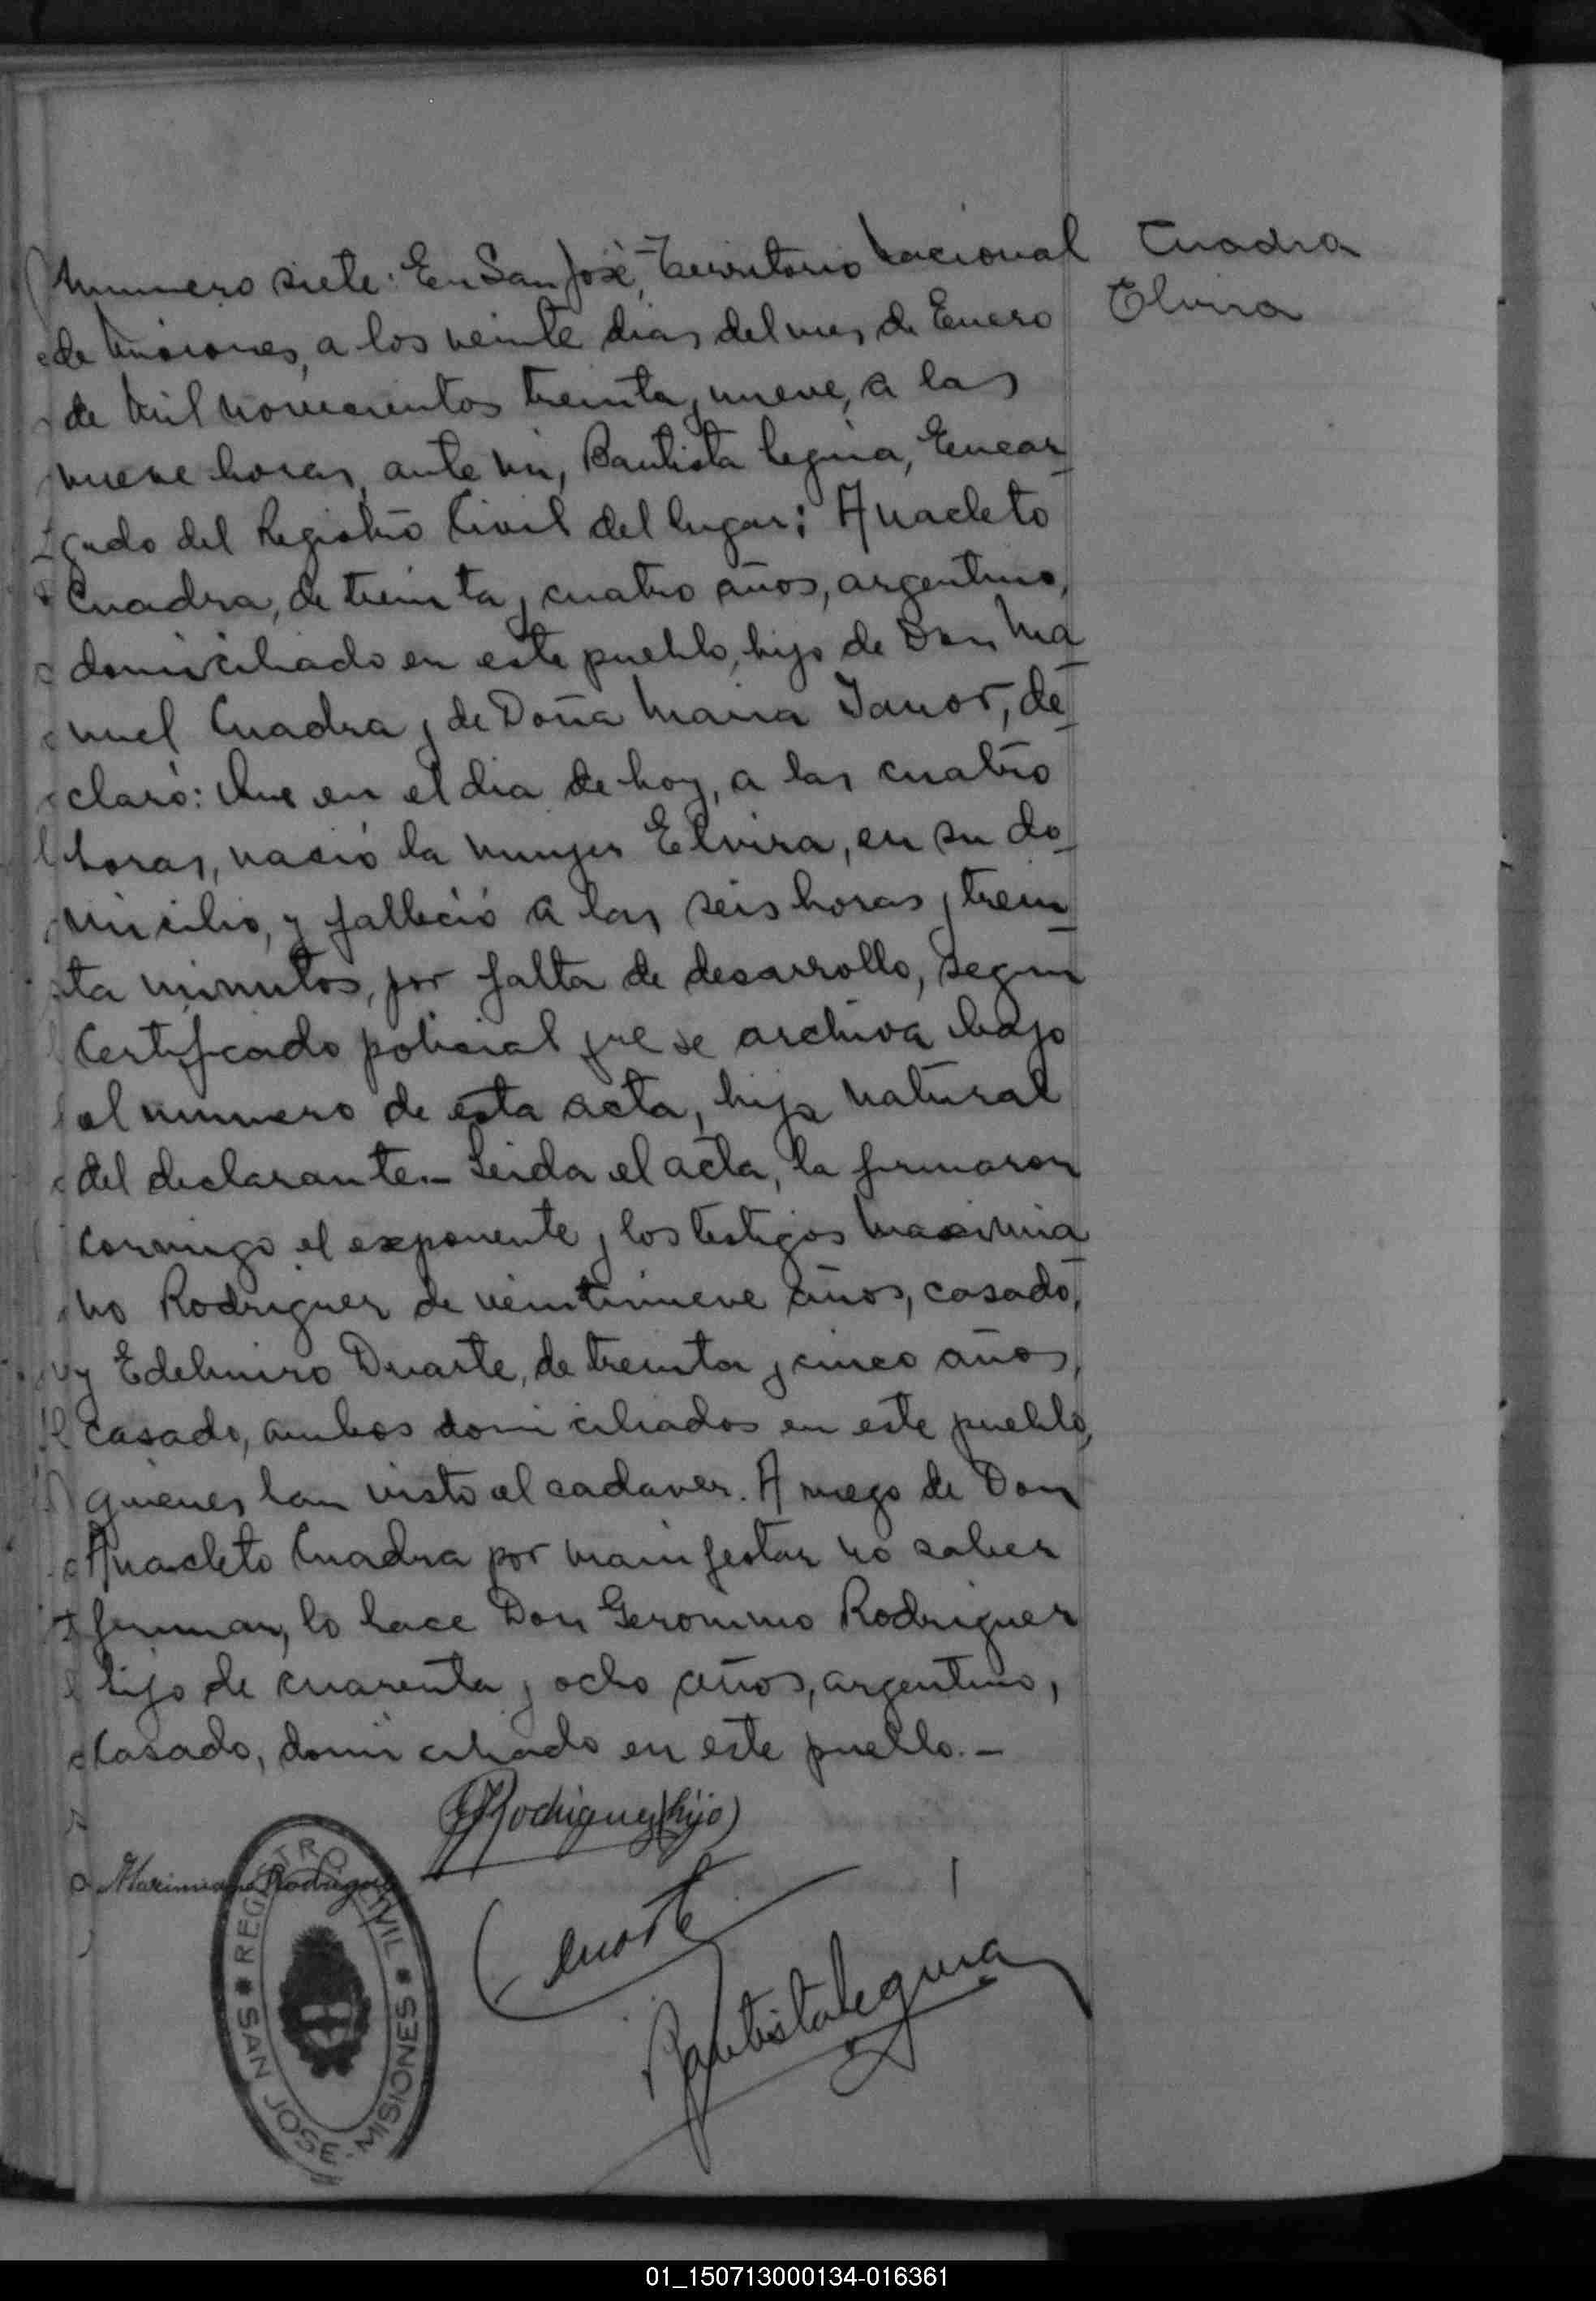 Cuadra
Elvira
Numero siete: En San José, Territorio Nacional
de Misiones, a los veinte dias del mes de Enero
de Mil Novecientos treinta y nueve, a las
nueve horas, ante mi, Bautista Leguia, Encar-
gado del Registro Civil del lugar: Anacleto
Cuadra, de treinta y cuatro años, argentino,
domiciliado en este pueblo, hijo de Don Ma-
nuel Cuadra y de Doña Maria de-
claró: Que en el dia de hoy, a las cuatro
horas, nació la mujer Elvira, en su do-
micilio, y falleció a las seis horas y trein-
ta minutos, por falta de desarrollo, segun
Certificado policial que se archiva bajo
el numero de esta acta, hija natural
del declarante.- Leida el acta, la firmaron
conmigo el exponente y los testigos Maximia-
no Rodriguez de veintinueve años, casado,
y Edelmiro Duarte, de treinta y cinco años,
casado, ambos domiciliados en este pueblo,
quienes han visto el cadaver. A ruego de Don
Anacleto Cuadra por manifestar no saber
firmar, lo hace Don Geronimo Rodriguez
hijo de cuarenta y ocho años, argentino,
Casado, domiciliado en este pueblo.-
GRodriguez (hijo)
Maximiano Rodriguez
Duarte
Bautista Leguia
REGISTRO CIVIL
SAN JOSE - MISIONES
01_150713000134-016361